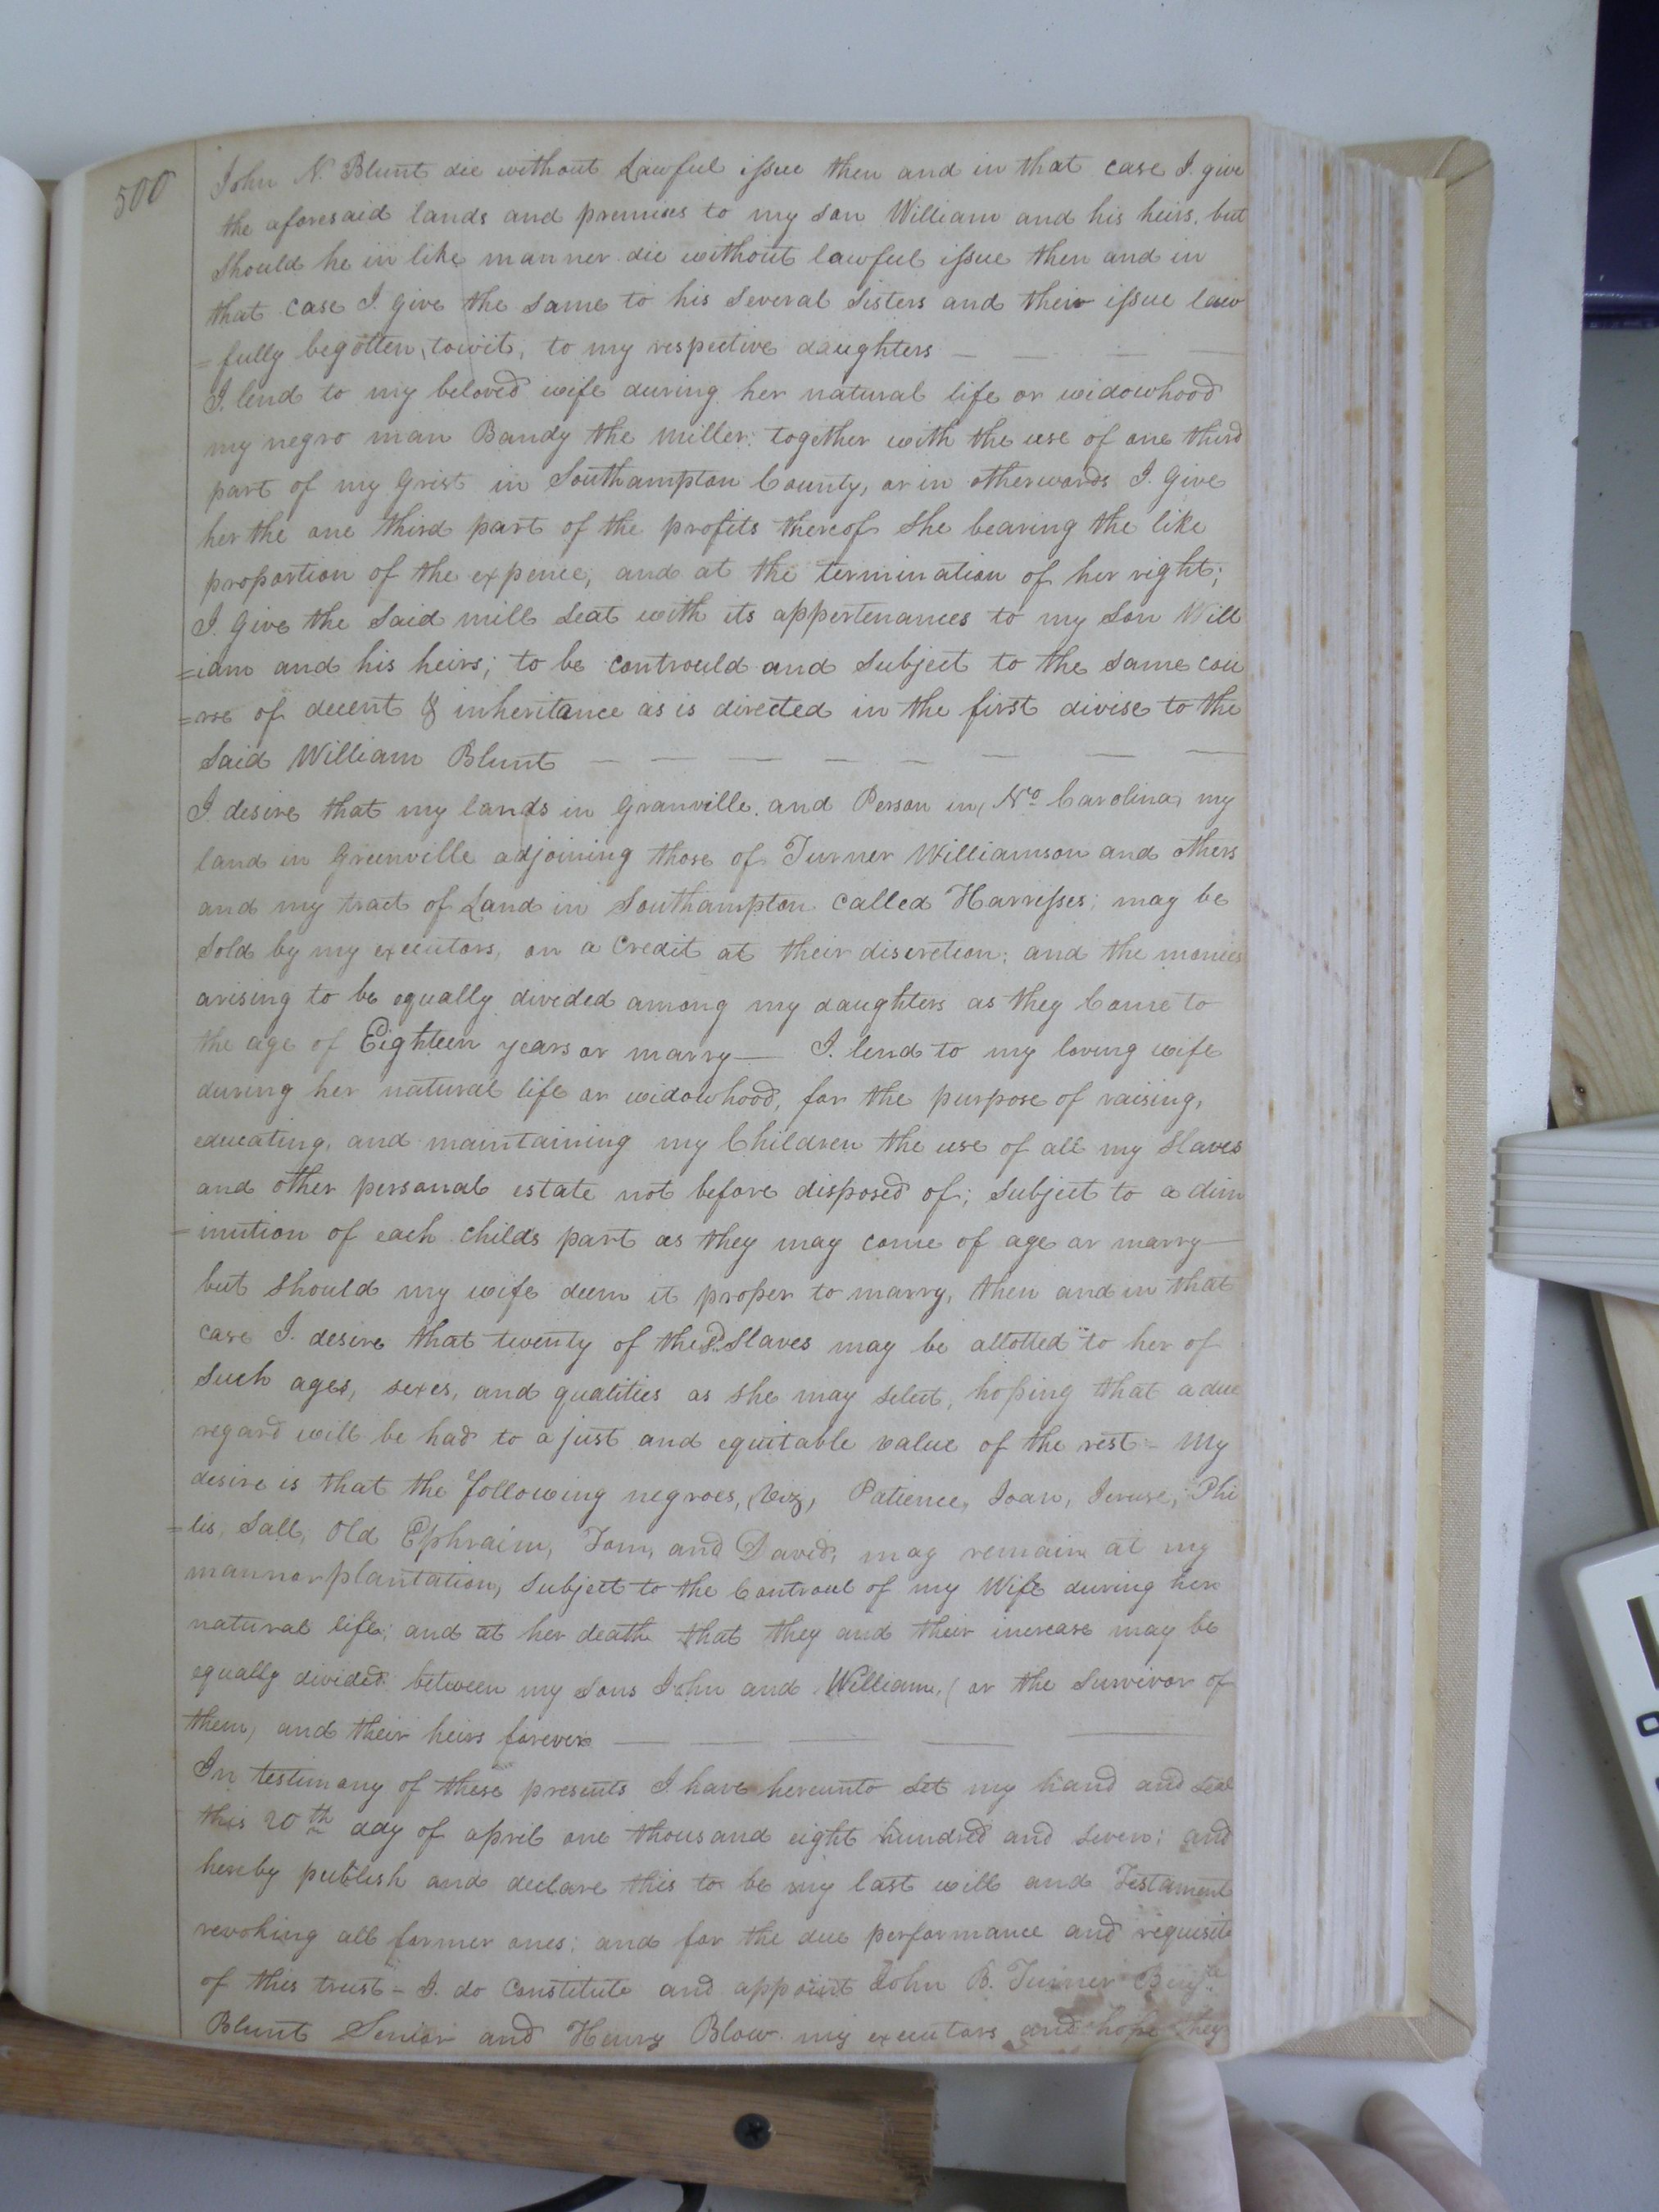 500
John N. Blunt die without Lawful issue then and in that case I give
the aforesaid lands and premises to my son William and his heirs, but
should he in like manner die without lawful issue then and in
that case I give the same to his several sisters and their issue law
=fully begotten, towit, to my respective daughters
I lend to my beloved wife during her natural life or widowhood
my negro man Bandy the Miller, together with the use of one third
part of my Grist in Southampton County, or in otherwords I give
her the one third part of the profits thereof she bearing the like
proportion of the expence, and at the termination of her right;
I give the said mill seat with its appertenances to my son Will
=iam and his heirs; to be controuled and subject to the same cou
=rse of decent & inheritance as is directed in the first divise to the
said William Blunt
I desire that my lands in Granville and Person in No Carolina, my
land in Greenville adjoining those of Turner Williamson and others
and my tract of Land in Southampton called Harrisses; may be
sold by my executors, on a credit at their discretion; and the monies
arising to be equally divided among my daughters as they Come to
the age of Eighteen years or marry — I lend to my loving wife
during her natural life or widowhood, for the purpose of raising,
educating, and maintaining my Children the use of all my Slaves
and other personal estate not before disposed of; subject to a dim
=inution of each childs part as they may come of age or marry
but should my wife deem it proper to marry, then and in that
case I desire that twenty of the sd Slaves may be allotted to her of
such ages, sexes, and qualities as she may select, hoping that a due
regard will be had to a just and equitable value of the rest - My
desire is that the following negroes, (Viz, Patience, Joan, Phi
=lis, Sall, Old Ephraim, Tom, and David, may remain at my
mannor plantation, subject to the Controul of my Wife during her
natural life; and at her death that they and their increase may be
equally divided between my sons John and William, (or the survivor of
them) and their heirs forever
In testimony of these presents I have hereunto set my hand and seal
this 20th day of april one thousand eight hundred and seven; and
hereby publish and declare this to be my last will and Testament
revoking all former ones; and for the due performance and requisite
of this trust - I do Constitute and appoint John B. Turner Benja
Blunt Senior and Henry Blow my executors and hope they